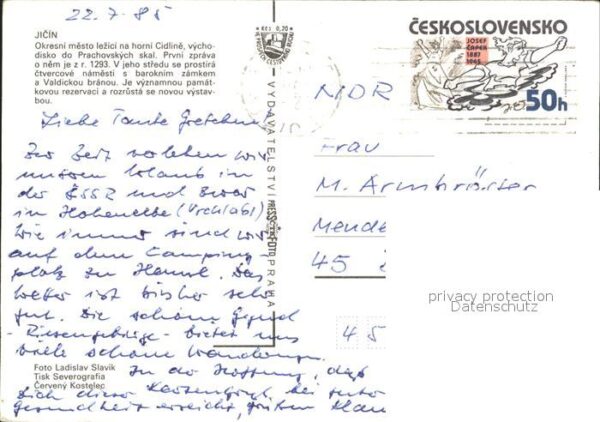 22.7.85
JIČÍN
Okresní město ležící na horní Cidlině, výcho-
disko do Prachovských skal. První zpráva
o něm je z r. 1293. V jeho středu se prostírá
čtvercové náměstí s barokním zámkem
a Valdickou bránou. Je významnou památ-
kovou rezervací a rozrůstá se novou výstav-
bou.
Liebe Tante Gretchen!
Zur Zeit verleben wir
unseren Urlaub in
der ČSSR und zwar
in Hohenelbe (Vrchlabí)
Wie immer sind wir
auf dem Camping-
platz zu Hause. Das
Wetter ist bisher sehr
gut. Die schöne Gegend
- Riesengebirge - bietet uns
viele schöne Wanderungen.
In der Hoffnung, daß
Dich dieser Kartengruß bei guter
Gesundheit erreicht, grüßen Klau
Foto Ladislav Slavík
Tisk Severografia
Červený Kostelec
Kčs 0,20
VYDAVATELSTVÍ PRESSFOTO PRAHA
ČESKOSLOVENSKO
JOSEF
ČAPEK
1887
1945
50h
Frau
M. Armbrüster
Mende
45
45
privacy protection
Datenschutz